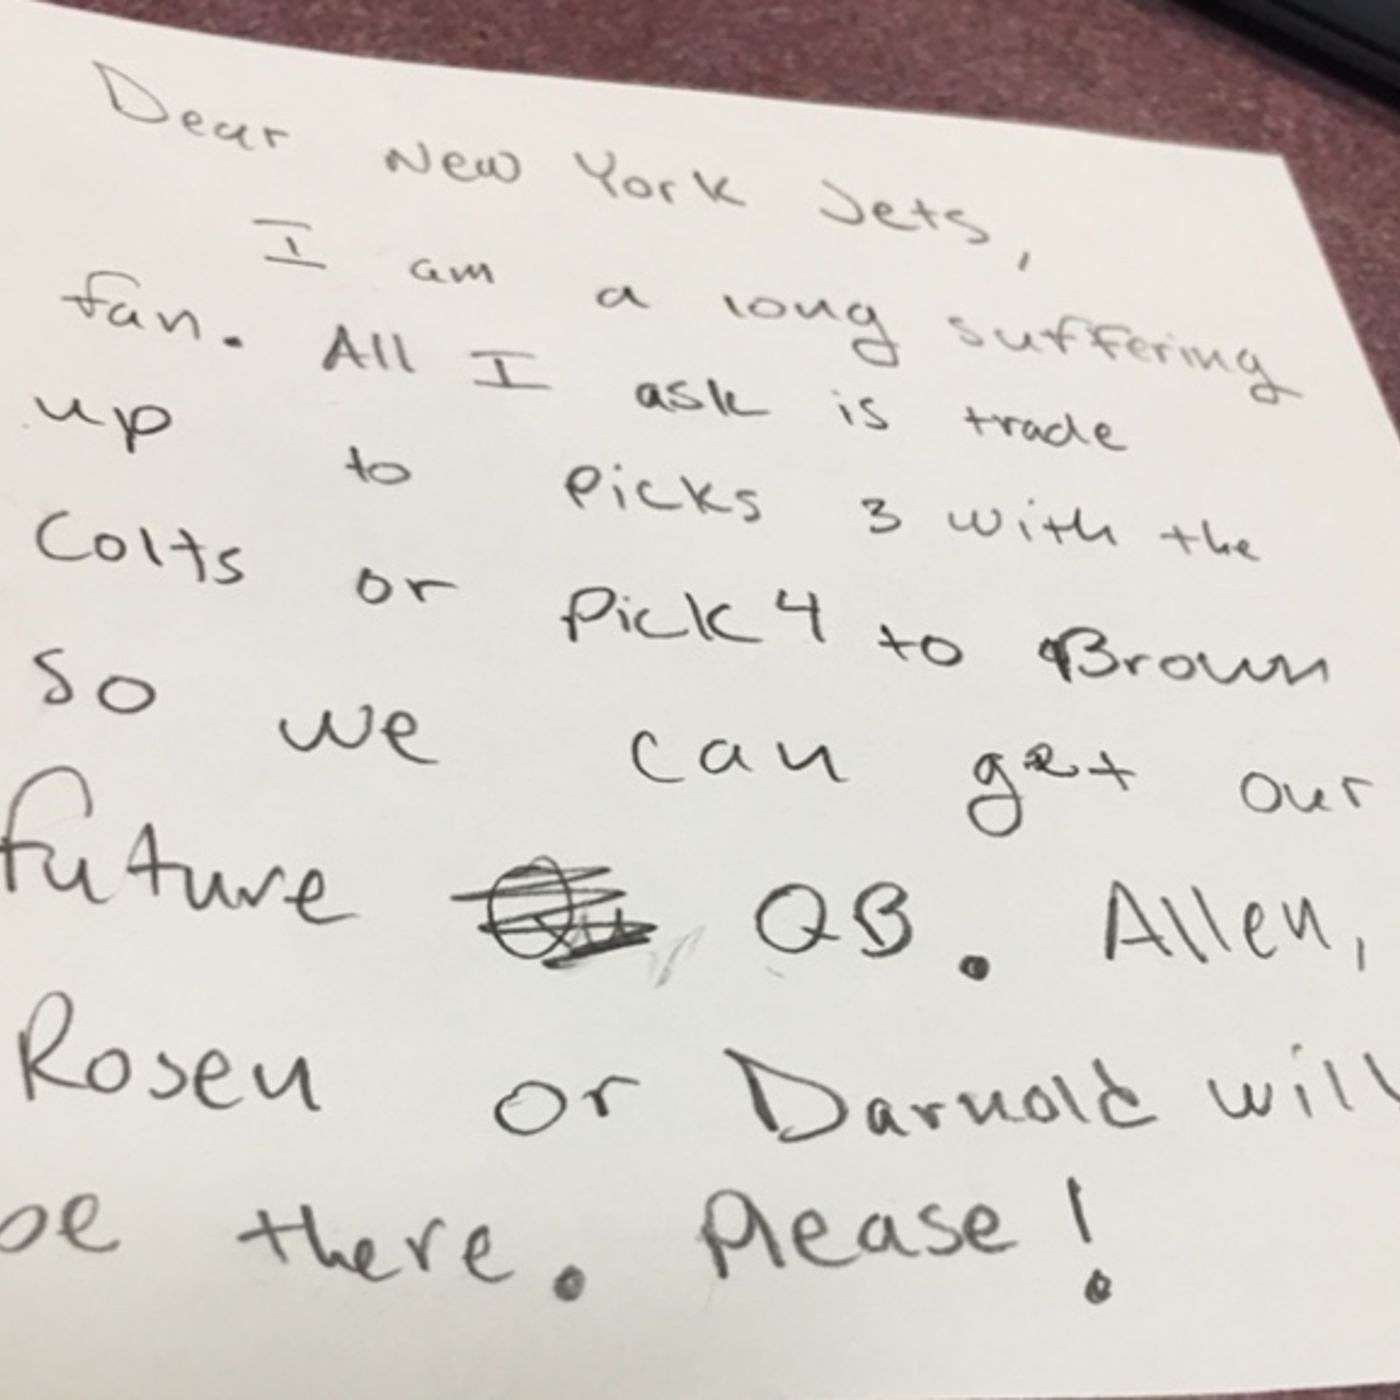 Dear New York Jets,
I am a long suffering
fan. All I ask is trade
up to picks 3 with the
Colts or pick 4 to Brown
so we can get our
future QB. Allen,
Rosen or Darnold will
be there. Please!